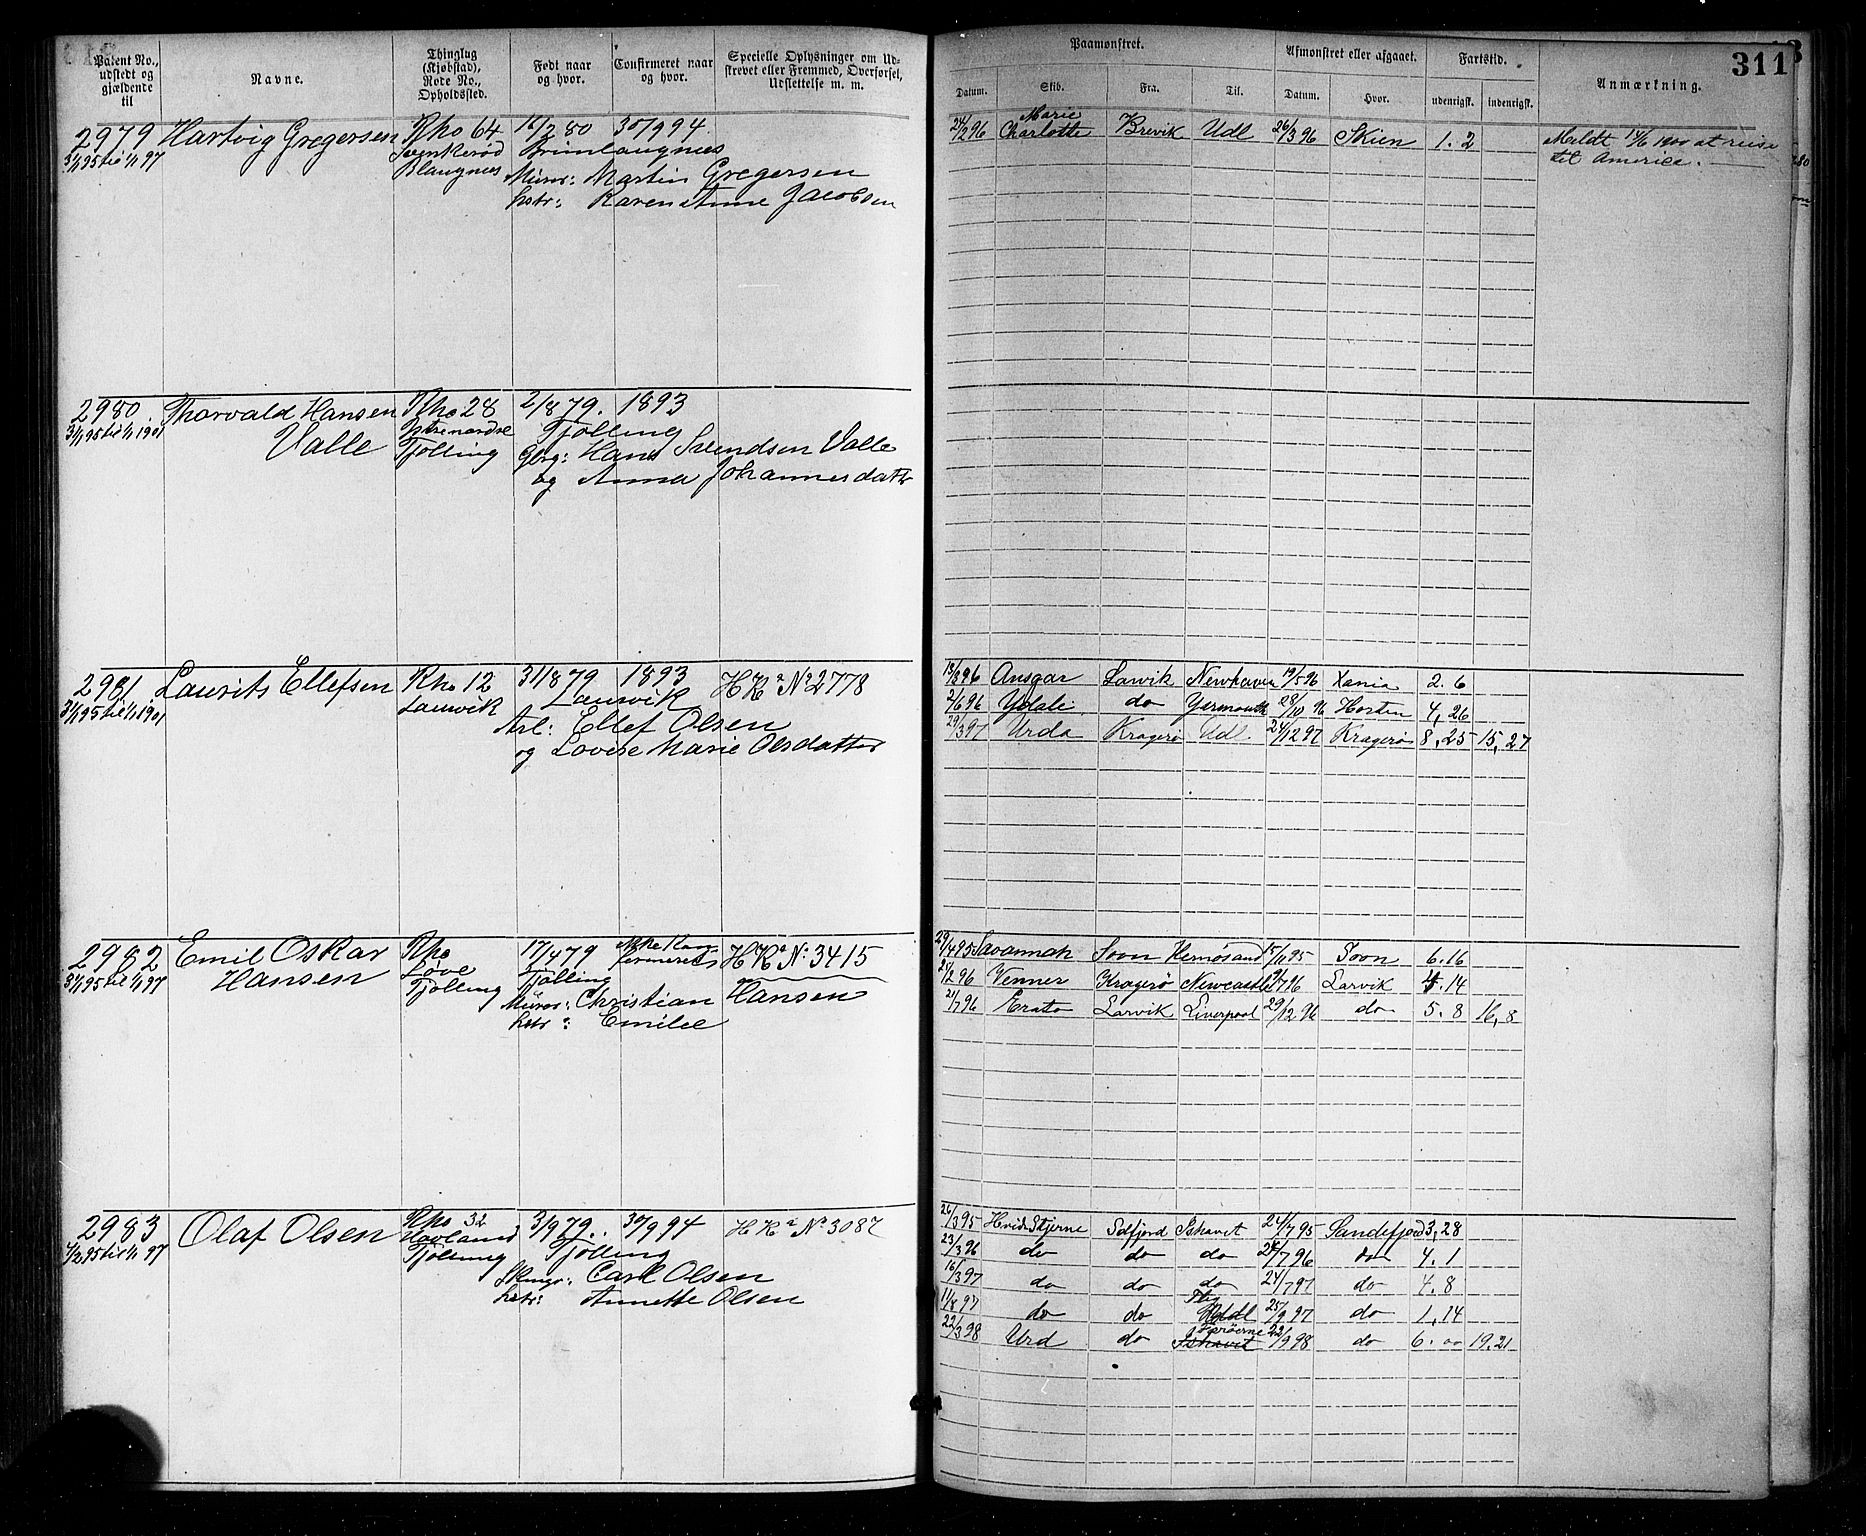 Patent No., udstedt og gjældende til
Navne.
Thinglag (Kjøbstad), Rode No., Opholdssted.
Født naar og hvor.
Confirmeret naar og hvor.
Specielle Oplysninger om Udskrevet eller Fremmed, Overførsel, Udslettelse m. m.
Paamønstret.
Datum.
Skib.
Fra.
Til.
Afmønstret eller afgaaet.
Datum.
Hvor.
Fartstid.
udenrigsk.
indenrigsk.
Anmærkning.
311
2979 Hartvig Gregersen Rho 64 12/2 80 30/9 94.
31/1 95 til 1/1 97 Brunlaugnæs
Blaugnæs Murer: Martin Gregersen
hstr: Karen Anne Jacobsen
24/2 96 Marie Charlotte Brevik Udl 26/3 96 Skien 1. 2 Meldt 1900 at reise
til America.
2980 Thorvald Hansen Rho 28 2/8 79. 1893
31/1 95 til 1/1 1901 Valle Tjølling Tjølling
Gbrg: Hans Svendsen Valle
og Anna Johannesdatter
2981 Laurits Ellefsen Rho 12 31/8 79 1893 HR No 2778
31/1 95 til 1/1 1901 Laurvik Laurvik
Arb: Ellef Olsen
og Lovise Marie Olsdatter
13/3 96 Ansgar Larvik Newhaven 19/5 96 Xania 2. 6
2/6 96 Ydale do Yarmouth 28/10 96 Horten 4, 26
29/3 97 Urda Kragerø Udl. 24/12 97 Kragerø 8, 25 15, 27
2982 Emil Oskar Rho 17/4 79 Ikke Konfirmeret HR No: 3415
31/1 95 til 1/1 97 Hansen Løve Tjølling Tjølling
Murer: Christian Hansen
hstr: Emilie
29/4 95 Savannah Sovn Hernøsand 15/11 95 Sovn 6. 16
2/2 96 Venner Kragerø Newcastle 96 Larvik 4. 14
21/7 96 Erato Larvik Liverpool 29/12 96 do 5. 8 16, 8
2983 Olaf Olsen Rho 32 3/9 79. 30/9 94 HR No. 3087
1/2 95 til 1/1 97 Havland Tjølling Tjølling
Carl Olsen
hstr: Annette Olsen
26/3 95 Hvide Stjerne Sdfjord Ishavet 24/7 95 Sandefjord 3, 28
23/3 96 do do do 24/7 96 do 4. 1
16/3 97 do do do 24/7 97 do 4. 8
11/8 97 do do Udl 25/9 97 do 1, 14
22/3 98 Urd do Færøerne 22/9 98 do 6. 00 19. 21